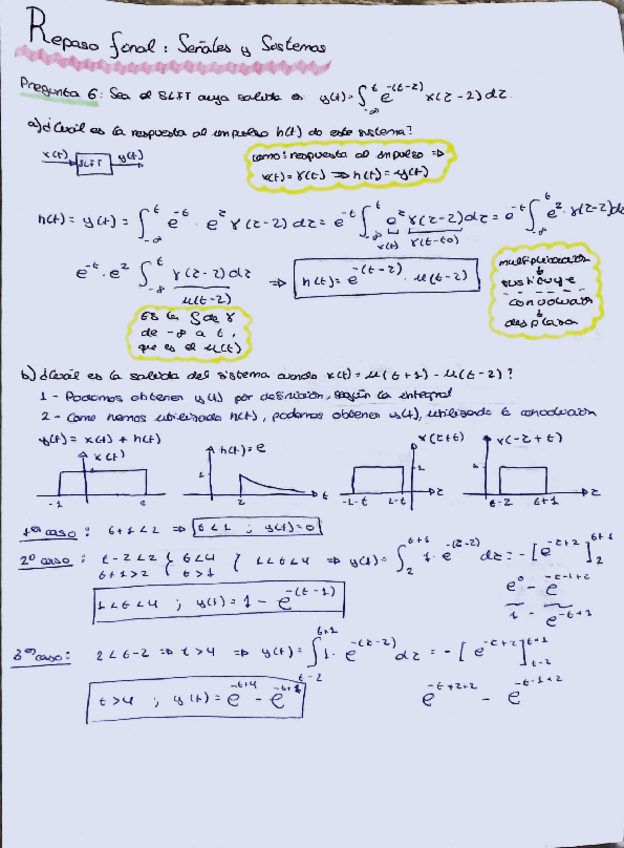 Repaso final: Señales y Sistemas
Pregunta 6: Sea el SLIT cuya salida es y(t)=∫_{-∞}^{t} e^{-(t-z)} x(z-2) dz.
a) ¿Cuál es la respuesta al impulso h(t) de este sistema?
x(t) → SLIT → y(t)
como: respuesta al impulso ⇒
x(t)=γ(t) ⇒ h(t)=y(t)
h(t) = y(t) = ∫_{-∞}^{t} e^{-t} · e^{z} γ(z-2) dz = e^{-t} ∫_{-∞}^{t} e^{z} γ(z-2) dz = e^{-t} ∫_{-∞}^{t} e^{2} · γ(z-2) dz
x(t) γ(t-t0)
e^{-t} · e^{2} ∫_{-∞}^{t} γ(z-2) dz ⇒ h(t) = e^{-(t-2)} · u(t-2)
u(t-2)
multiplicación
↓
sustituye
convolución
↓
desplaza
Es la ∫ de γ
de -∞ a t,
que es el u(t)
b) ¿Cuál es la salida del sistema cuando x(t) = u(t+1) - u(t-2)?
1 - Podemos obtener y(t) por definición, según la integral
2 - Como hemos utilizado h(t), podemos obtener y(t), utilizando la convolución
y(t) = x(t) * h(t)
x(t) h(t)=e x(z+t) x(-z+t)
-1 2 2 t -1-t 2-t z t-2 t+1 z
1er caso: t+1<2 ⇒ t<1 ; y(t)=0
2º caso: t-2<2 { t<4 { 1<t<4 ⇒ y(t) = ∫_{2}^{t+1} 1 · e^{-(z-2)} dz = -[e^{-z+2}]_{2}^{t+1}
t+1>2 { t>1
e^{0} - e^{-t-1+2}
1 - e^{-t+1}
1<t<4 ; y(t) = 1 - e^{-(t-1)}
3er caso: 2<t-2 ⇒ t>4 ⇒ y(t) = ∫_{t-2}^{t+1} 1 · e^{-(z-2)} dz = -[e^{-z+2}]_{t-2}^{t+1}
t>4 ; y(t) = e^{-t+4} - e^{-t+1}
e^{-t+2+2} - e^{-t-1+2}